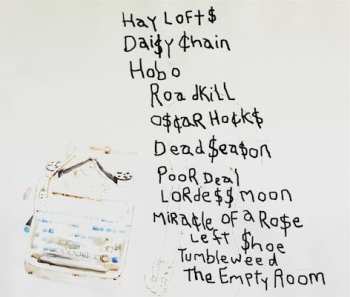 HAY LOFT$
Dai$y ¢hain
Hobo
RoadKiLL
O$¢aR HoCK$
Dead $ea$on
PooR Deal
LoRde$$ moon
MiRa¢le of a Ro$e
Left $hoe
Tumbleweed
The Empty Room